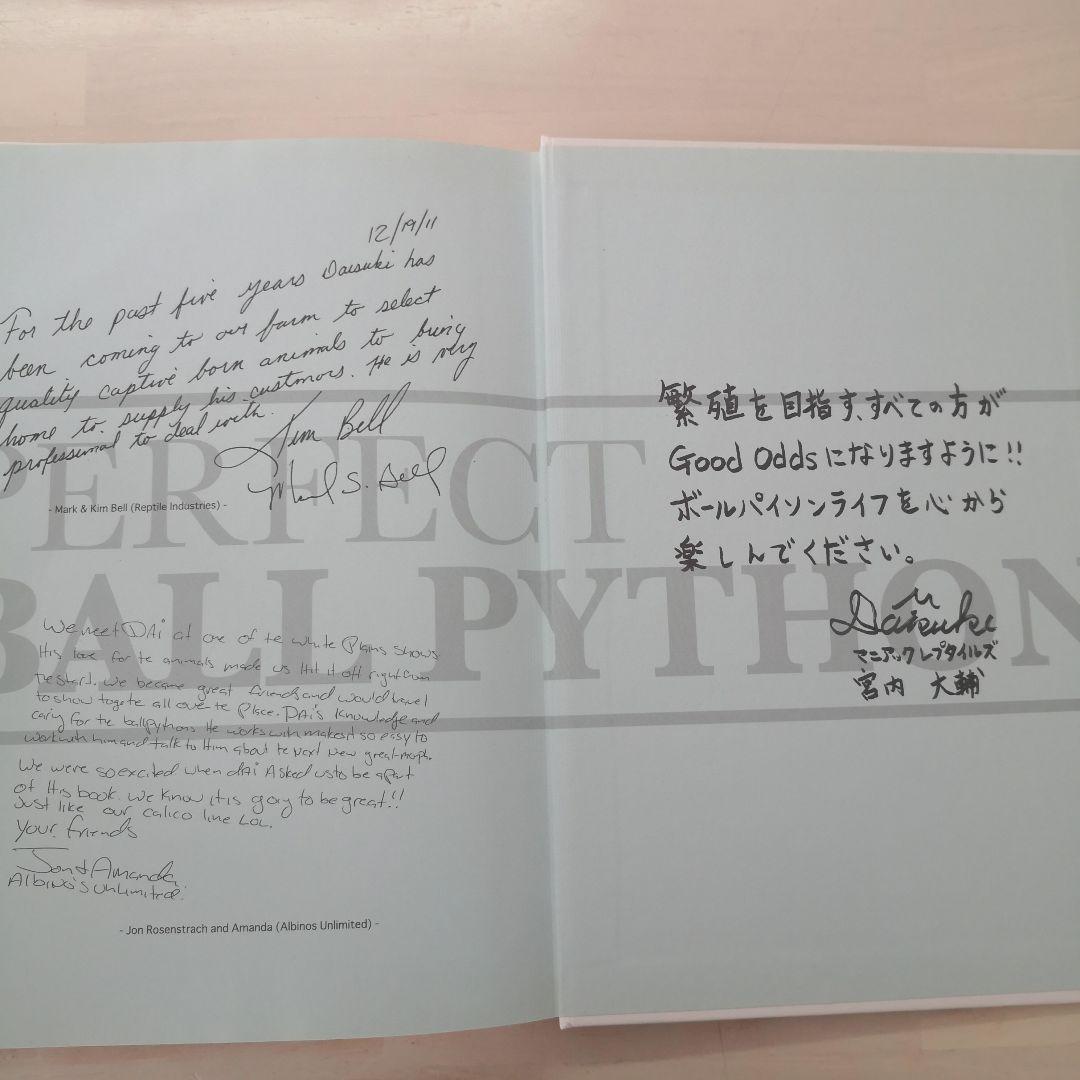 12/19/11
For the past five years Daisuki has
been coming to our farm to select
quality captive born animals to bring
home to supply his custmors. He is very
professional to deal with.
Kim Bell
Mark S. Bell
- Mark & Kim Bell (Reptile Industries) -
PERFECT
BALL PYTHON
We meet DAi at one of te white Plains shows
His love for te animals made us Hit it off right from
te start. We became great friends and would travel
to show togete all over te Place. DAi's knowledge and
caring for te ballpythons He works with makes it so easy to
work with him and talk to Him about te Next New great morph.
We were so excited when dAi Asked us to be apart
of His book. We know it is goiy to be great!!
Just like our calico line LOL.
Your friends
Jon & Amanda
Albino's Unlimited.
- Jon Rosenstrach and Amanda (Albinos Unlimited) -
繁殖を目指す、すべての方が
Good Oddsになりますように!!
ボールパイソンライフを心から
楽しんでください。
Daisuki
マニアックレプタイルズ
宮内 大輔